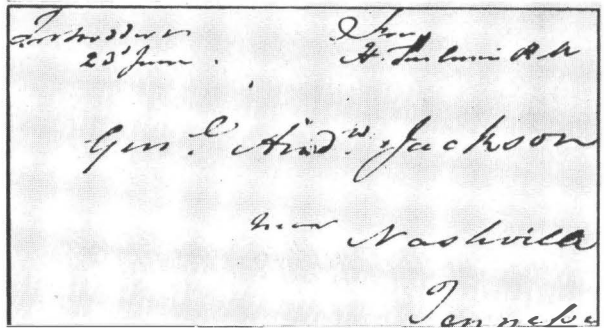 23d June
Free
H. P M
Genl. Andw. Jackson
near Nashville
Tennessee